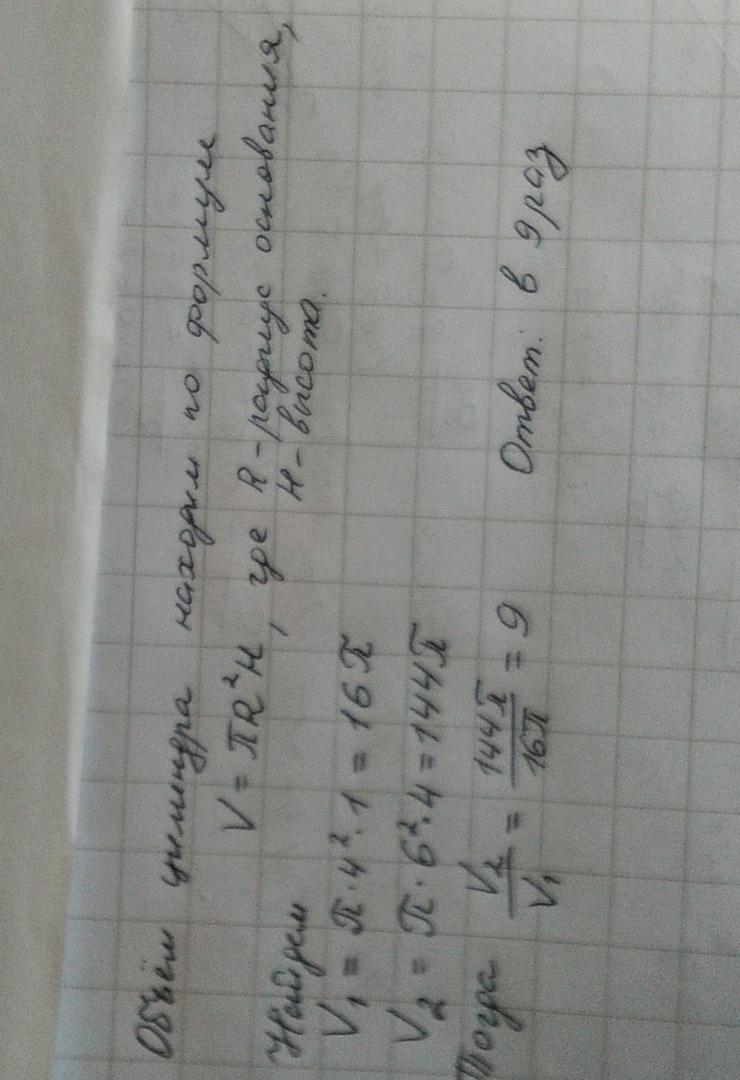 Объём цилиндра находим по формуле
V = πR²H, где R - радиус основания,
H - высота.
Найдем
V₁ = π · 4² · 1 = 16π
V₂ = π · 6² · 4 = 144π
Тогда V₂/V₁ = 144π/16π = 9
Ответ: в 9 раз